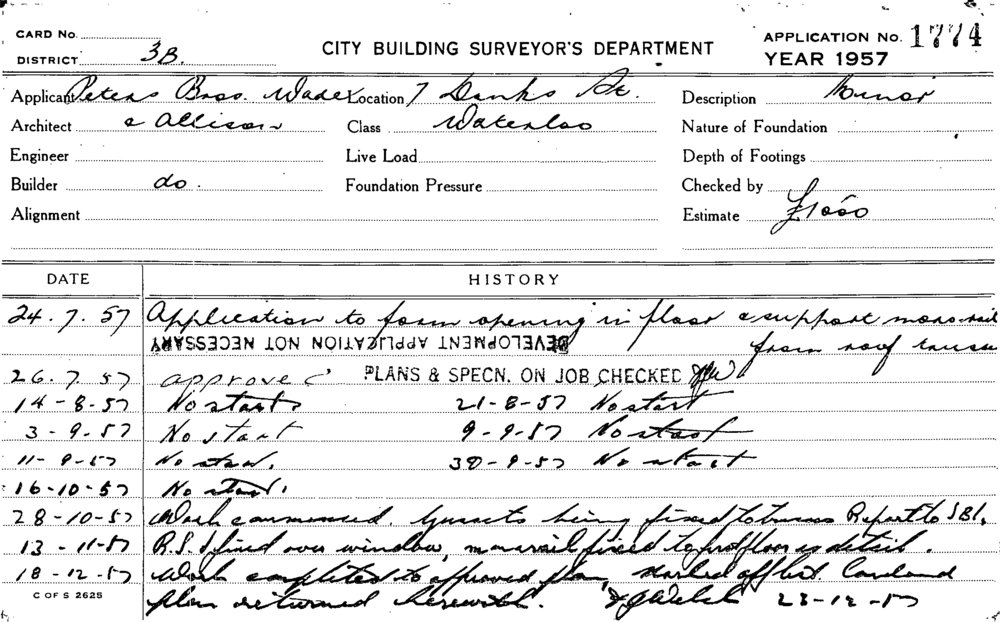 CARD No.
DISTRICT 3B.
CITY BUILDING SURVEYOR'S DEPARTMENT
APPLICATION No. 1774
YEAR 1957
Applicant Peters Bros. Wade Location 7 Danks St. Description Minor
Architect & Allison Class Waterloo Nature of Foundation
Engineer Live Load Depth of Footings
Builder do. Foundation Pressure Checked by
Alignment Estimate £1000
DATE HISTORY
24.7.57 Application to form opening in floor & support mono-rail
DEVELOPMENT APPLICATION NOT NECESSARY from roof truss
26.7.57 approved PLANS & SPECN. ON JOB CHECKED
14-8-57 No start. 21-8-57 No start
3-9-57 No start 9-9-57 No start
11-9-57 No start. 30-9-57 No start
16-10-57 No start.
28-10-57 Work commenced. Gussets being fixed to truss Report to SBI.
13-11-57 R.S.J fixed over window, monorail fixed as detail.
18-12-57 Work completed to approved plan, marked off list. Card and
C OF S 2625
plan returned herewith. Welch 23-12-57